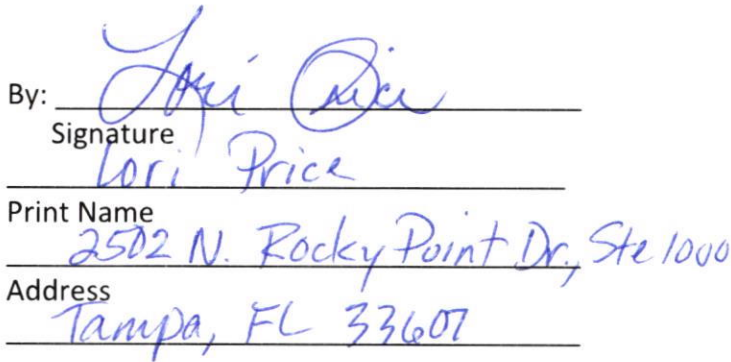 By: Lori Price
Signature
Lori Price
Print Name
2502 N. Rocky Point Dr., Ste 1000
Address
Tampa, FL 33607